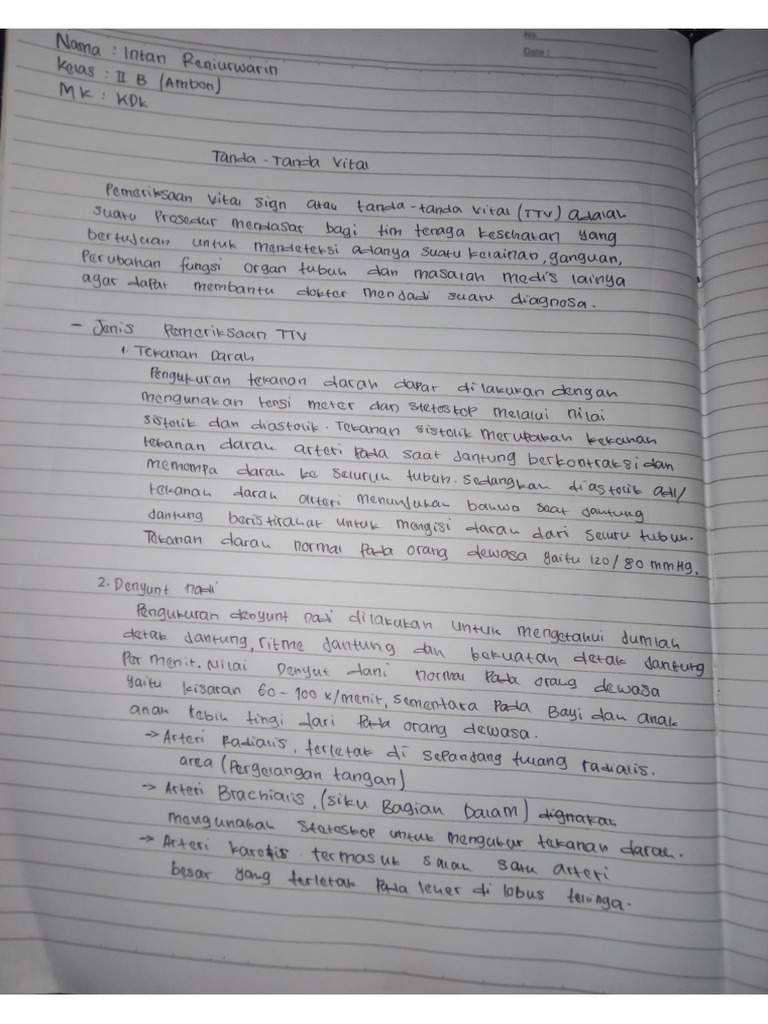 No.
Date :
Nama : Intan Reniurwarin
Kelas : II B (Ambon)
MK : KDK
Tanda - Tanda Vital
Pemeriksaan Vital sign atau tanda-tanda vital (TTV) adalah
suatu Prosedur mendasar bagi tim tenaga kesehatan yang
bertujuan untuk mendeteksi adanya suatu kelainan, ganguan,
Perubahan fungsi organ tubuh dan masalah medis lainya
agar dapat membantu dokter mendadi suatu diagnosa.
- Jenis Pemeriksaan TTV
1. Tekanan Darah
Pengukuran tekanan darah dapat dilakukan dengan
mengunakan tensi meter dan stetoskop melalui nilai
sistolik dan diastolik. Tekanan sistolik merupakan kekanan
tekanan darah arteri pada saat jantung berkontraksi dan
memompa darah ke seluruh tubuh. sedangkan diastolik adl/
tekanah darah arteri menunjukan bahwa saat jantung
jantung beristirahat untuk mengisi darah dari seluru tubuh.
Tekanan darah normal pada orang dewasa yaitu 120/80 mmHg.
2. Denyunt nadi
Pengukuran denyunt nadi dilakukan untuk mengetahui jumlah
detak jantung, ritme jantung dan kekuatan detak jantung
Per menit. Nilai Denyut dani normal pada orang dewasa
yaitu kisaran 60-100 x/menit, sementara pada Bayi dan anak
anak kebih tingi dari pada orang dewasa.
→ Arteri Radialis, terletak di sepanjang tulang radialis.
area (Pergelangan tangan)
→ Arteri Brachialis, (siku Bagian Dalam) dignakan
mengunakan stetoskop untuk mengukur tekanan darah.
→ Arteri karotis termasuk salah satu arteri
besar yang terletak pada leher di lobus telinga.